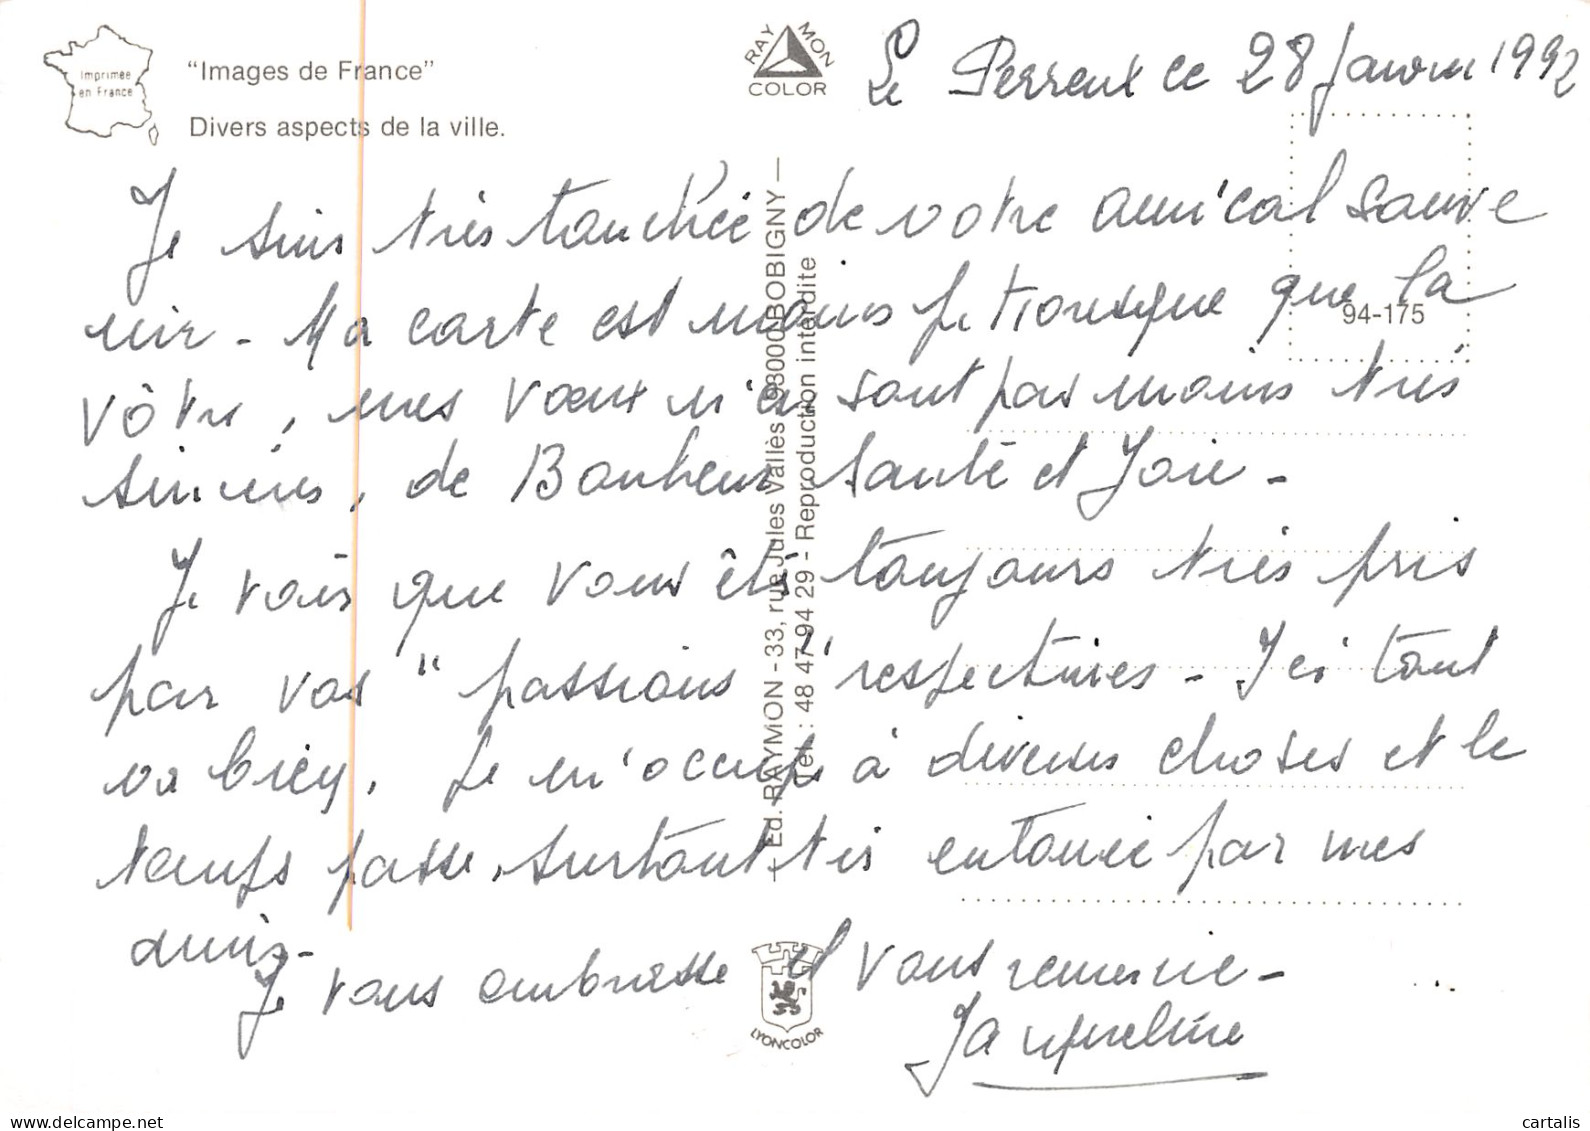 Imprimée
en France
"Images de France"
Divers aspects de la ville.
RAYMON
COLOR
Le Perreux ce 28 Janvier 1992
Je suis très touchée de votre amical souve
nir - Ma carte est moins pittoresque que la
vôtre, mes vœux n'en sont pas moins très
sincères, de Bonheur Santé et Joie -
Je vois que vous êtes toujours très pris
par vos "passions" respectives - Ici tout
va bien. Je m'occupe à diverses choses et le
temps passe, surtout très entourée par mes
amis -
Je vous embrasse et vous remercie -
Jacqueline
94-175
Ed. RAYMON - 33, rue Jules Vallès 93000 BOBIGNY
Tél. : 48 47 94 29 - Reproduction interdite
LYONCOLOR
delcampe.net
cartalis